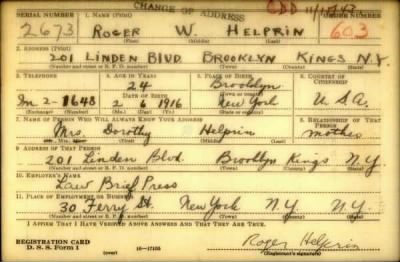 CHANGE OF ADDRESS
CDD 11/15/43
SERIAL NUMBER 1. NAME (Print) ORDER NUMBER
2673 ROGER W. HELPRIN 603
(First) (Middle) (Last)
2. ADDRESS (Print)
201 LINDEN BLVD. BROOKLYN KINGS N.Y.
(Number and street or R. F. D. number) (Town) (County) (State)
3. TELEPHONE 4. AGE IN YEARS 5. PLACE OF BIRTH 6. COUNTRY OF CITIZENSHIP
24 Brooklyn
DATE OF BIRTH (Town or county)
In 2-1648 2 6 1916 New York U.S.A.
(Mo.) (Day) (Yr.) (State or country)
7. NAME OF PERSON WHO WILL ALWAYS KNOW YOUR ADDRESS 8. RELATIONSHIP OF THAT PERSON
Mrs. Dorothy Helprin mother
(Mr., Mrs., Miss) (First) (Middle) (Last)
9. ADDRESS OF THAT PERSON
201 Linden Blvd. Brooklyn Kings N.Y.
(Number and street or R. F. D. number) (Town) (County) (State)
10. EMPLOYER'S NAME
Law Brief Press
11. PLACE OF EMPLOYMENT OR BUSINESS
30 Ferry St. New York N.Y. N.Y.
(Number and street or R. F. D. number) (Town) (County) (State)
I AFFIRM THAT I HAVE VERIFIED ABOVE ANSWERS AND THAT THEY ARE TRUE.
REGISTRATION CARD
D. S. S. Form 1 (over) 16-17105 Roger Helprin
(Registrant's signature)